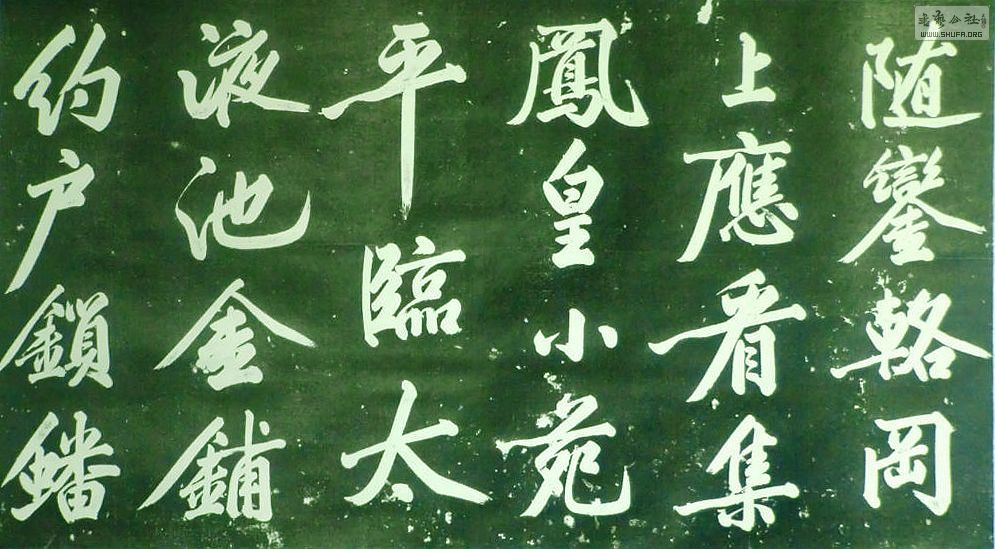 随鑾輅岡
上應看集
鳳皇小苑
平臨太
液池金鋪
約户鎖蟠
書藝公社
WWW.SHUFA.ORG